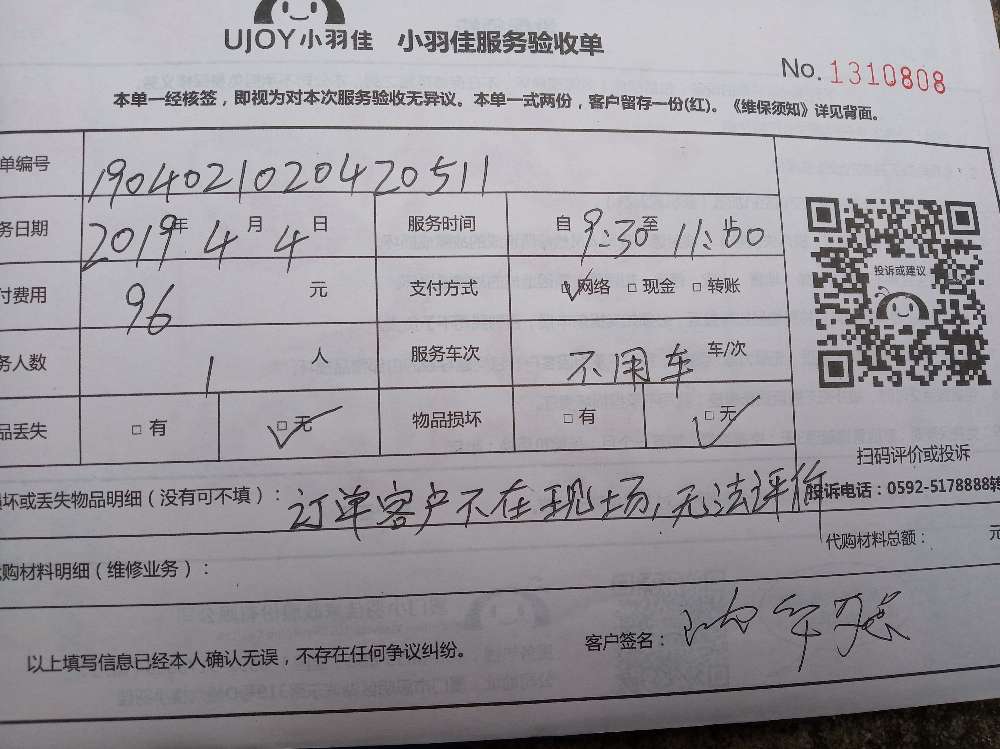 UJOY小羽佳 小羽佳服务验收单
No. 1310808
本单一经核签，即视为对本次服务验收无异议。本单一式两份，客户留存一份(红)。《维保须知》详见背面。
单编号 190402102042051 1
务日期 2019年4月4日 服务时间 自9:30至11:00止
付费用 96 元 支付方式 □网络 □现金 □转账
务人数 1 人 服务车次 不用车 车/次
品丢失 □有 □无 物品损坏 □有 □无
投诉或建议
扫码评价或投诉
投诉电话：0592-5178888转
坏或丢失物品明细（没有可不填）： 订单客户不在现场,无法评价
代购材料总额： 元
购材料明细（维修业务）：
以上填写信息已经本人确认无误，不存在任何争议纠纷。
客户签名：